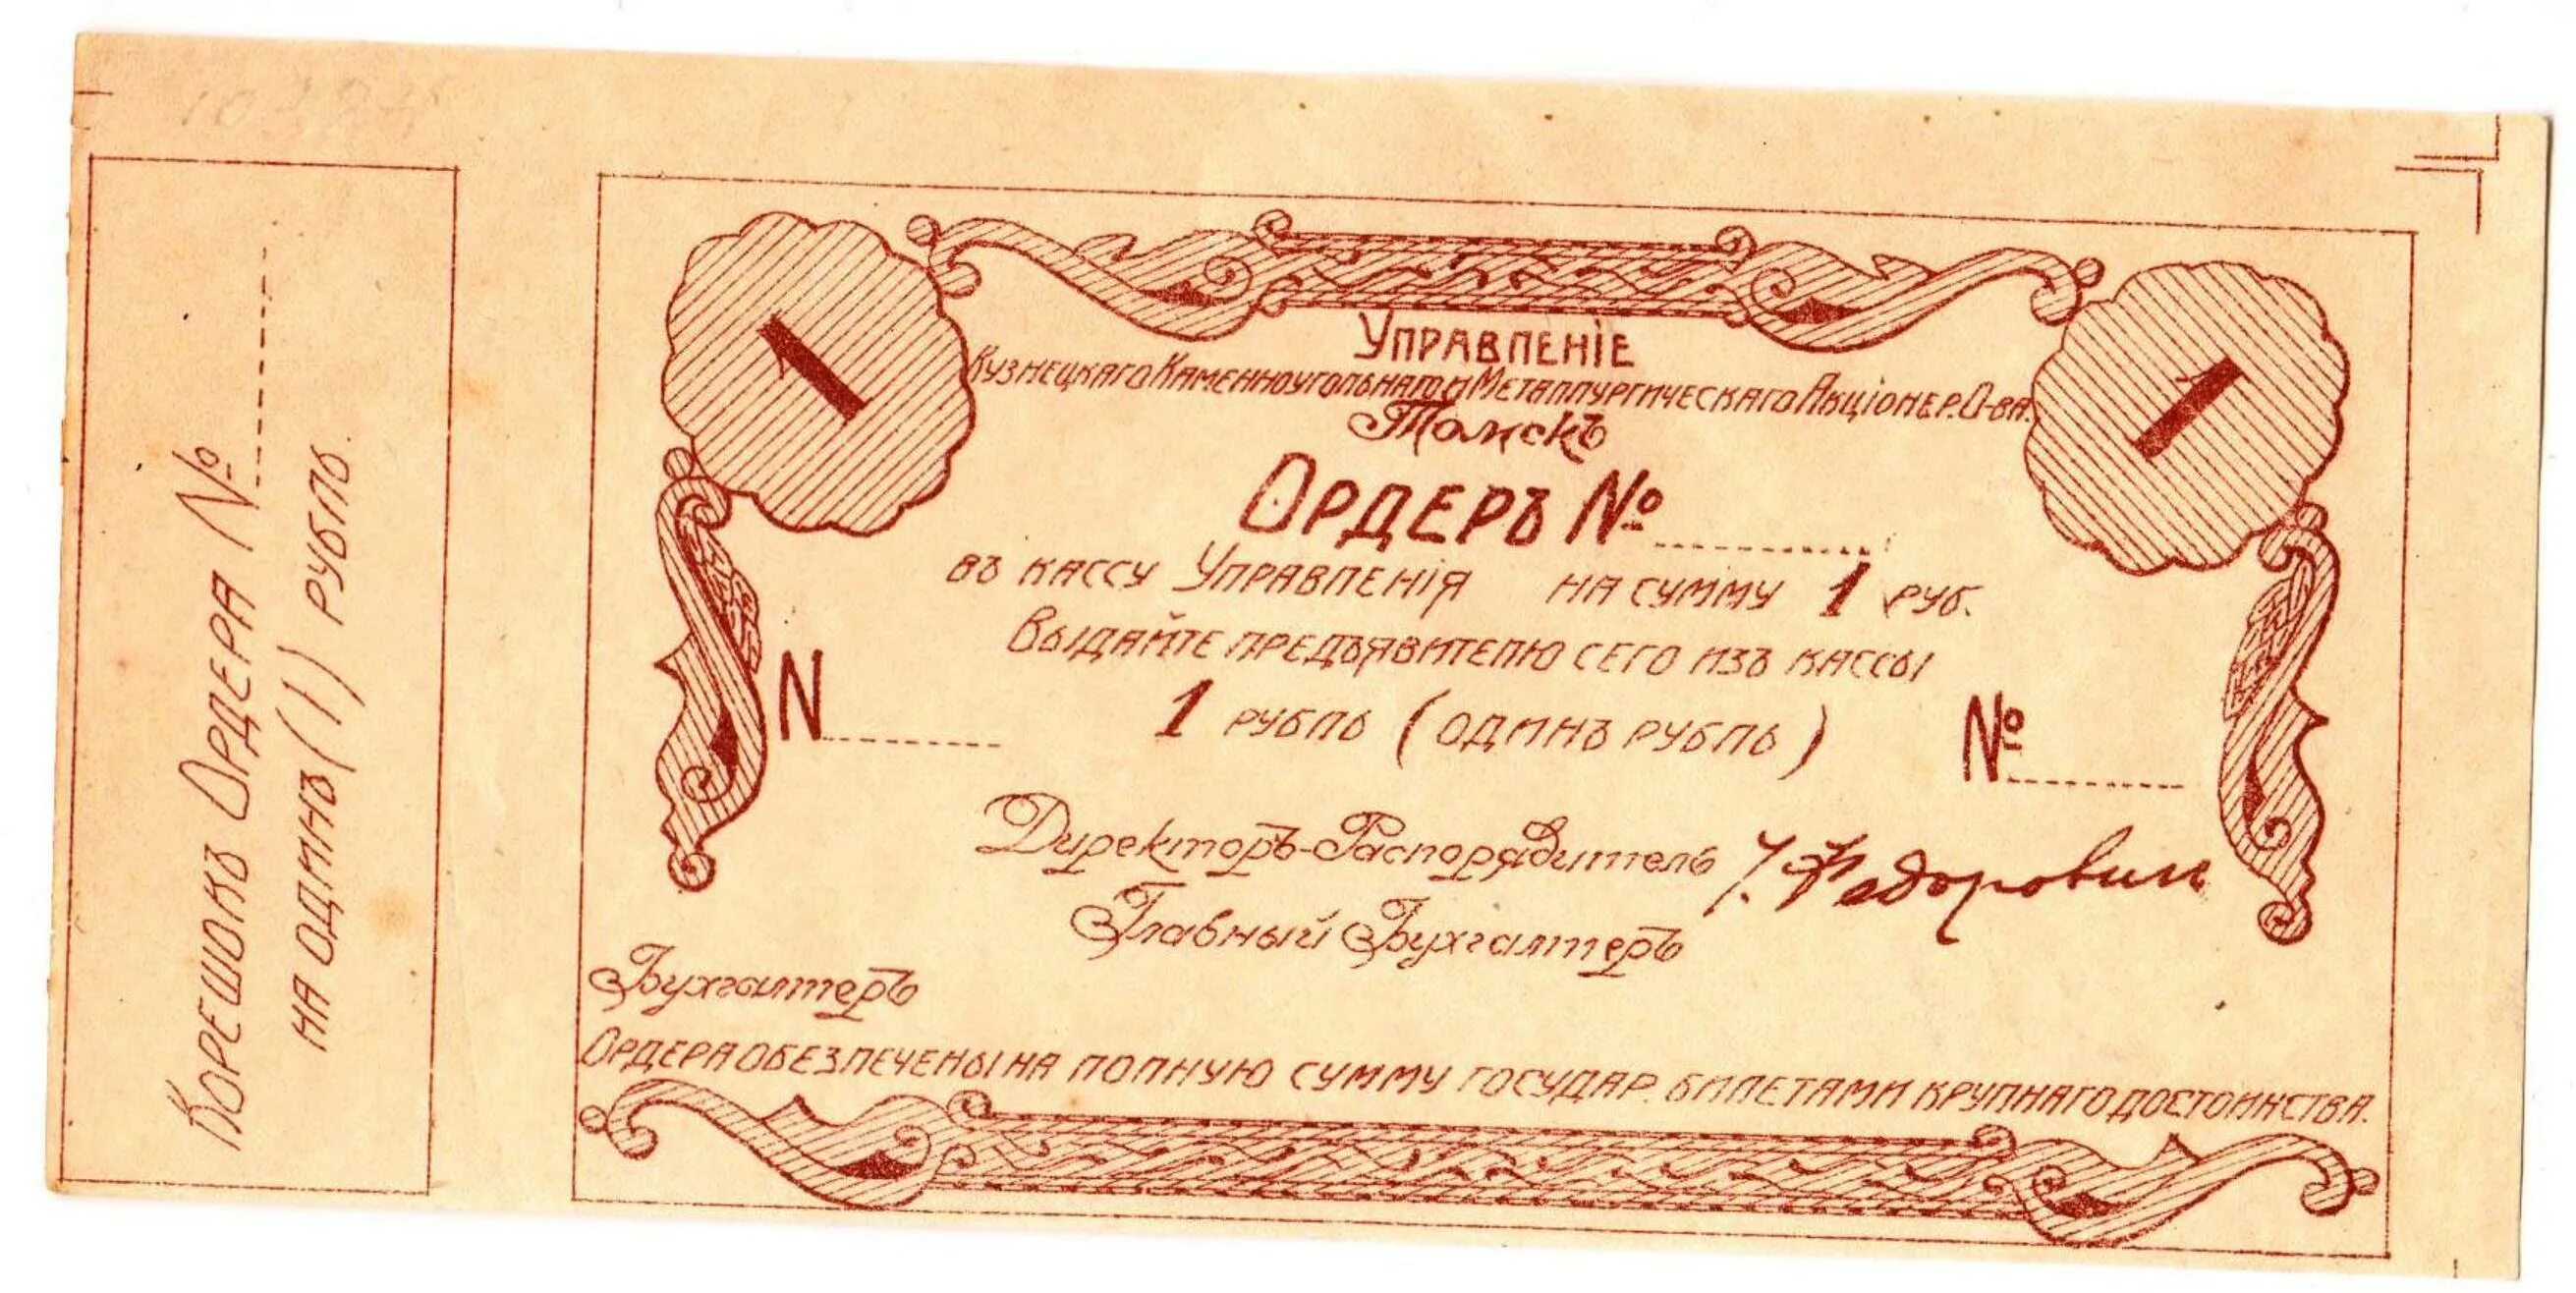 Корешокъ Ордера №
на одинъ (1) рубль.
1
1
Управленіе
Кузнецкаго Каменноугольнаго и Металлургическаго Акціонер. О-ва.
Томскъ
Ордеръ №
въ кассу Управленія на сумму 1 руб.
Выдайте предъявителю сего изъ кассы
1 рубль (одинъ рубль)
N
№
Директоръ-Распорядитель
Федорович
Главный Бухгалтеръ
Бухгалтеръ
Ордера обезпечены на полную сумму государ. билетами крупнаго достоинства.